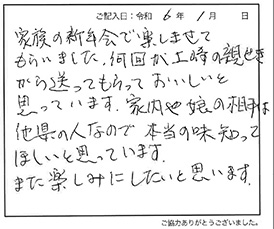 ご記入日：令和 6年 1月 日
家族の新年会で楽しませて
もらいました。何回か上峰の親せき
から送ってもらっておいしいと
思っています。家内や娘の相手は
他県の人なので本当の味知って
ほしいと思っています。
また楽しみにしたいと思います。
ご協力ありがとうございました。